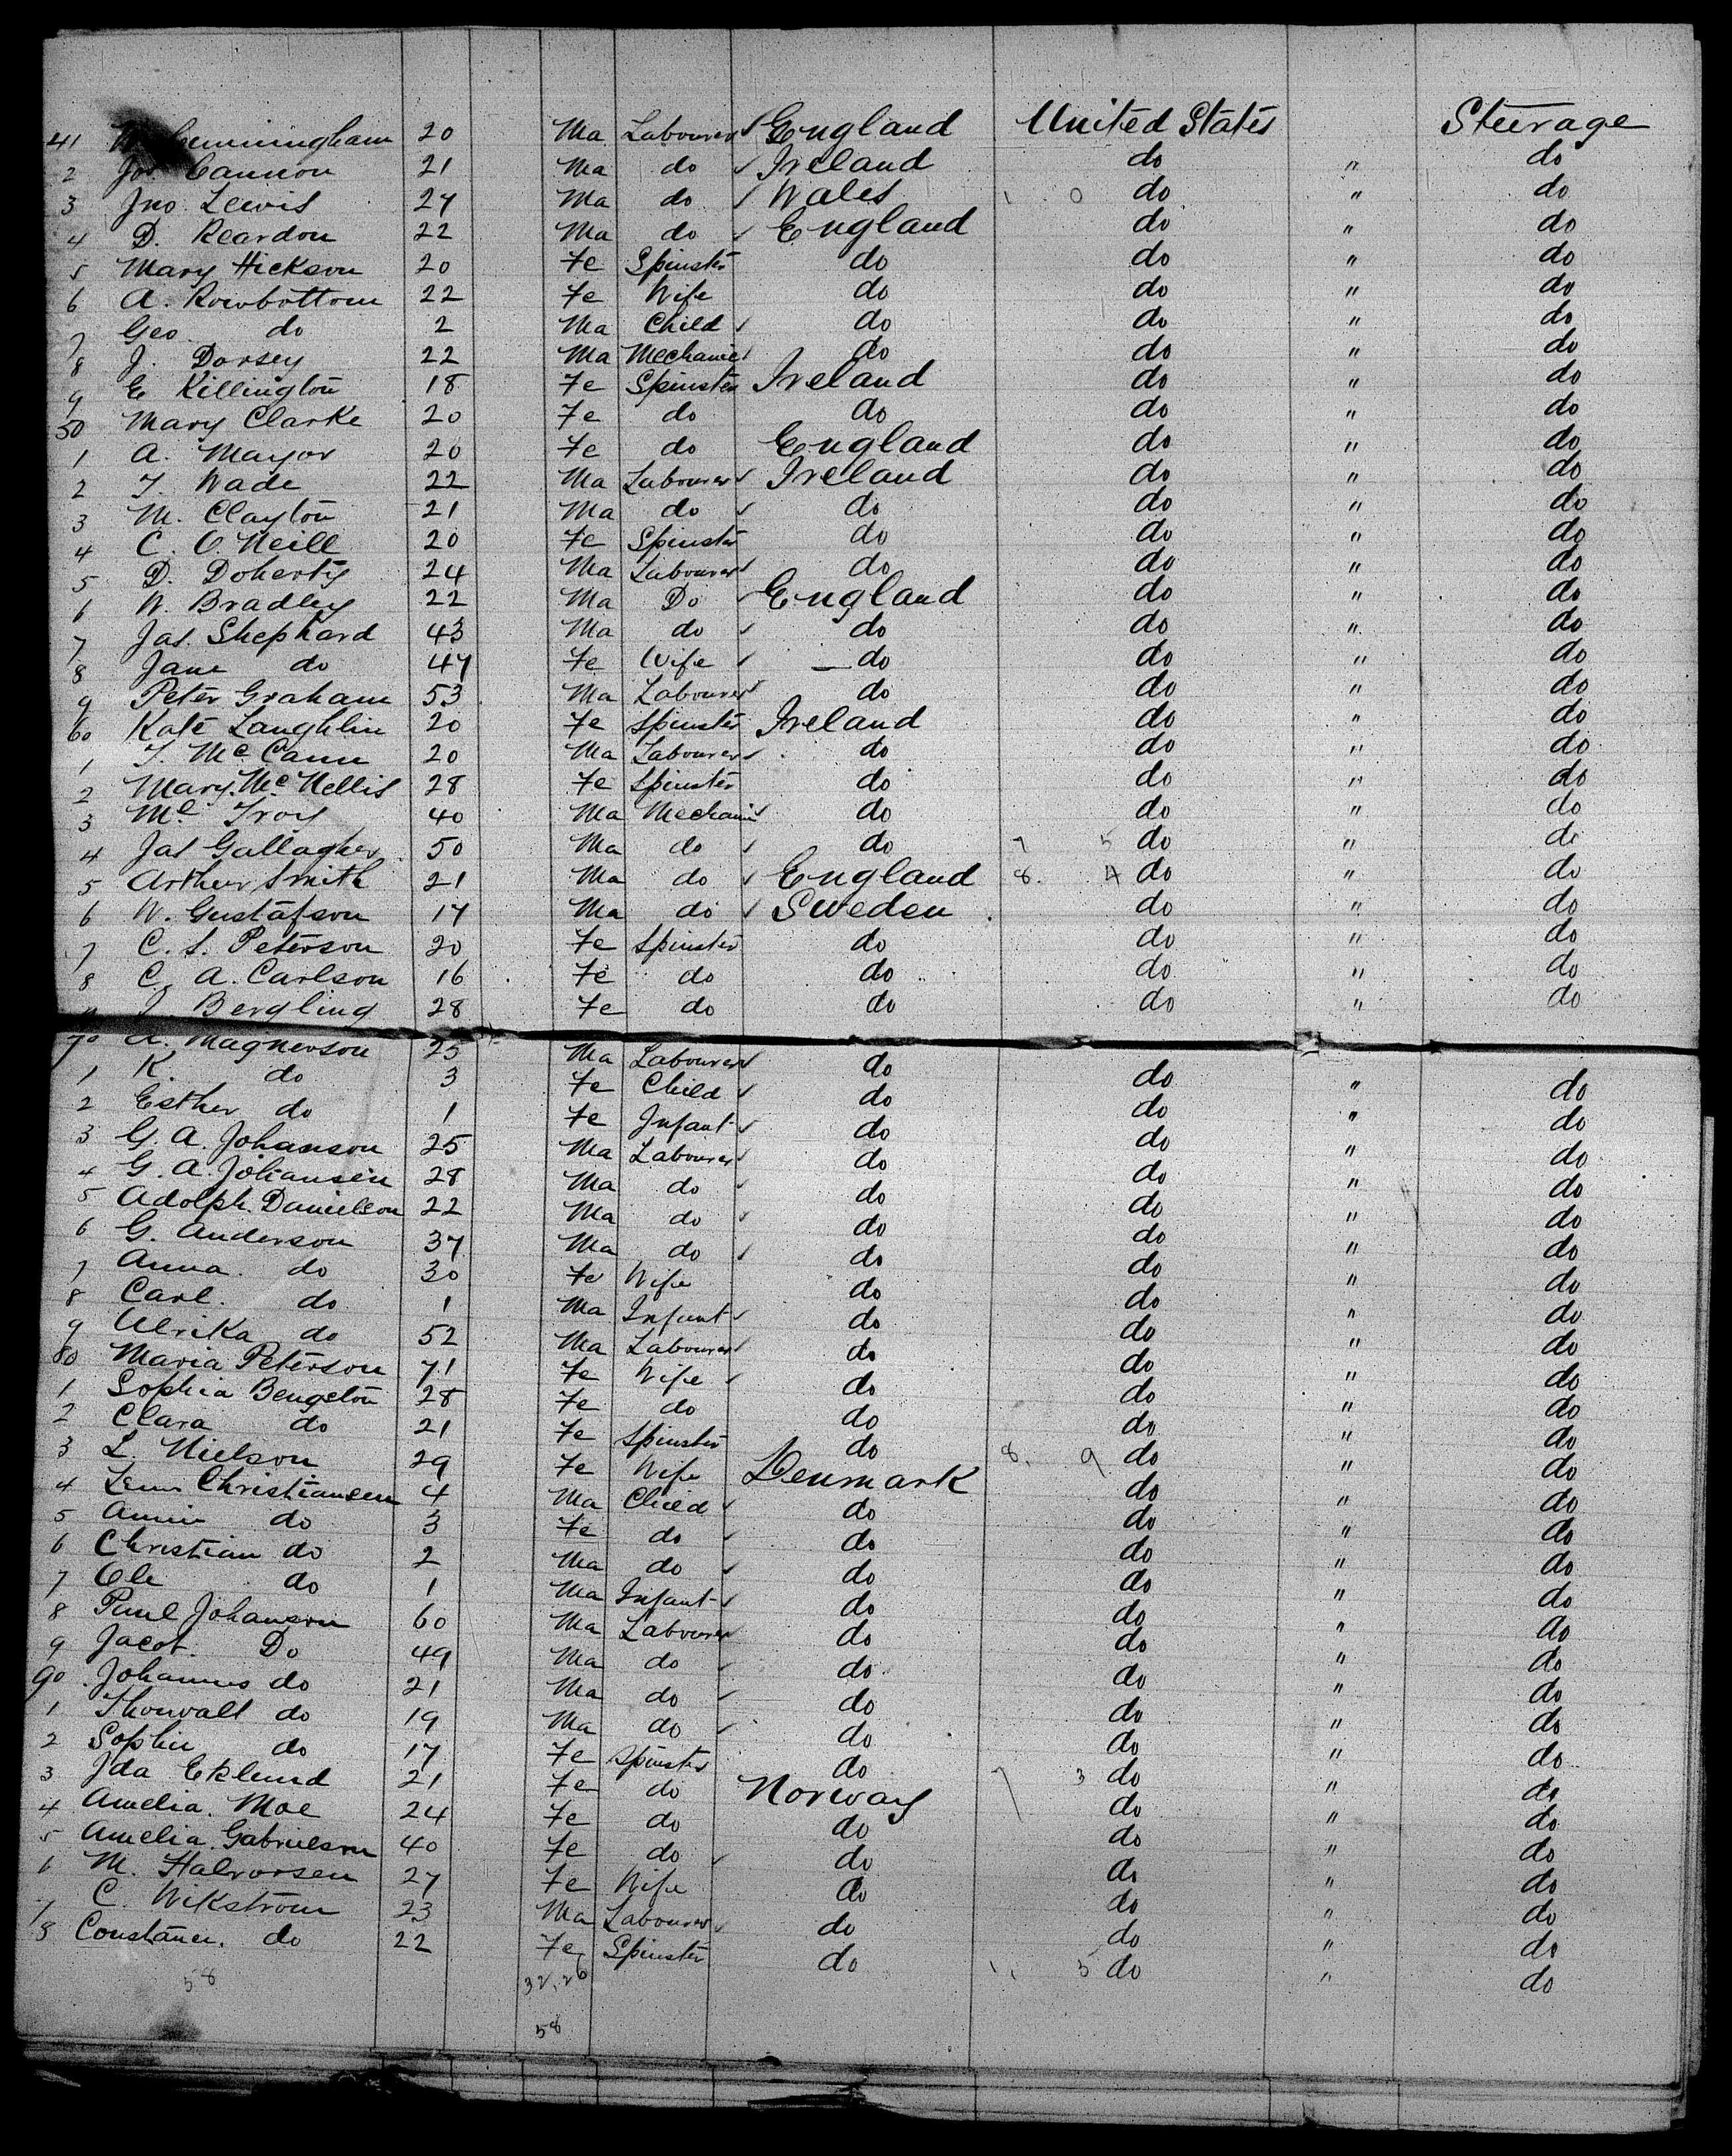 41 W. Cunningham 20 Ma Labourer England United States Steerage
2 Jos. Cannon 21 Ma do Ireland do " do
3 Jno. Lewis 27 Ma do Wales 1 0 do " do
4 D. Reardon 22 Ma do England do " do
5 Mary Hickson 20 Fe Spinster do do " do
6 A. Rowbottom 22 Fe Wife do do " do
7 Geo. do 2 Ma Child do do " do
8 J. Dorsey 22 Ma Mechanic do do " do
9 E Killington 18 Fe Spinster Ireland do " do
50 Mary Clarke 20 Fe do do do " do
1 A. Mayor 20 Fe do England do " do
2 T. Wade 22 Ma Labourer Ireland do " do
3 M. Clayton 21 Ma do do do " do
4 C. O. Neill 20 Fe Spinster do do " do
5 D. Doherty 24 Ma Labourer do do " do
6 W. Bradley 22 Ma Do England do " do
7 Jas. Shephard 43 Ma do do do " do
8 Jane do 47 Fe Wife do do " do
9 Peter Graham 53 Ma Labourer do do " do
60 Kate Laughlin 20 Fe Spinster Ireland do " do
1 T. McCann 20 Ma Labourer do do " do
2 Mary McNellis 28 Fe Spinster do do " do
3 Ml Troy 40 Ma Mechanic do do " do
4 Jas Gallagher 50 Ma do do 7 5 do " do
5 Arthur Smith 21 Ma do England 8. 4 do " do
6 W. Gustafson 17 Ma do Sweden do " do
7 C. S. Peterson 20 Fe Spinster do do " do
8 C. A. Carlson 16 Fe do do do " do
9 J. Bergling 28 Fe do do do " do
70 A. Magnerson 25 Ma Labourer do do " do
1 K. do 3 Fe Child do do " do
2 Esther do 1 Fe Infant do do " do
3 G. A. Johanson 25 Ma Labourer do do " do
4 G. A. Johansen 28 Ma do do do " do
5 Adolph. Danielson 22 Ma do do do " do
6 G. Anderson 37 Ma do do do " do
7 Anna. do 30 Fe Wife do do " do
8 Carl. do 1 Ma Infant do do " do
9 Ulrika do 52 Ma Labourer do do " do
80 Maria Peterson 71 Fe Wife do do " do
1 Sophia Bengston 28 Fe do do do " do
2 Clara do 21 Fe Spinster do do " do
3 L. Nielson 29 Fe Wife Denmark 8. 9 do " do
4 Christiansen 4 Ma Child do do " do
5 Annie do 3 Fe do do do " do
6 Christian do 2 Ma do do do " do
7 Ole do 1 Ma Infant do do " do
8 Paul Johanson 60 Ma Labourer do do " do
9 Jacob. Do 49 Ma do do do " do
90 Johannes do 21 Ma do do do " do
1 Thorvalt do 19 Ma do do do " do
2 Sophie do 17 Fe Spinster do do " do
3 Ida Eklund 21 Fe do Norway 7 3 do " do
4 Amelia. Moe 24 Fe do do do " do
5 Amelia. Gabrielson 40 Fe do do do " do
6 M. Halvorsen 27 Fe Wife do do " do
7 C. Wikstrom 23 Ma Labourer do do " do
8 Constance. do 22 Fe Spinster do 1, 5 do " do
58 32, 26
58